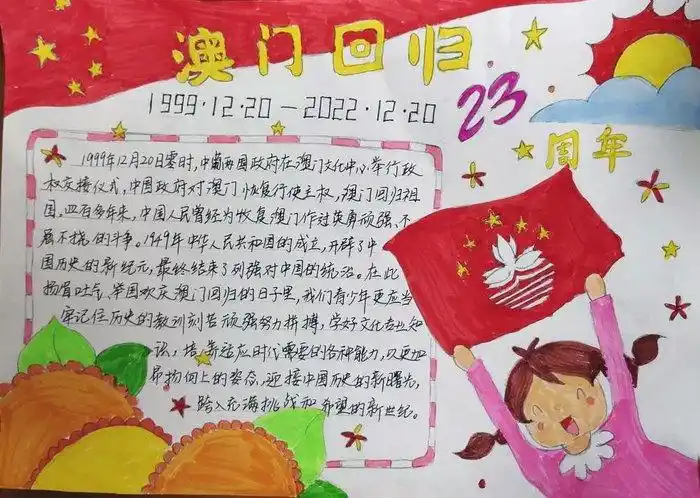 澳门回归
1999·12·20—2022·12·20
23
周年
1999年12月20日零时,中葡两国政府在澳门文化中心举行政
权交接仪式,中国政府对澳门恢复行使主权,澳门回归祖
国。四百多年来,中国人民曾经为恢复澳门作过英勇顽强、不
屈不挠的斗争。1949年中华人民共和国的成立,开辟了中
国历史的新纪元,最终结束了列强对中国的统治。在此
扬眉吐气、举国欢庆澳门回归的日子里,我们青少年更应当
牢记住历史的教训刻苦顽强努力拼搏,学好文化专业知
识,培养适应时代需要的各种能力,以更加
昂扬向上的姿态,迎接中国历史的新曙光,
跨入充满挑战和希望的新世纪。